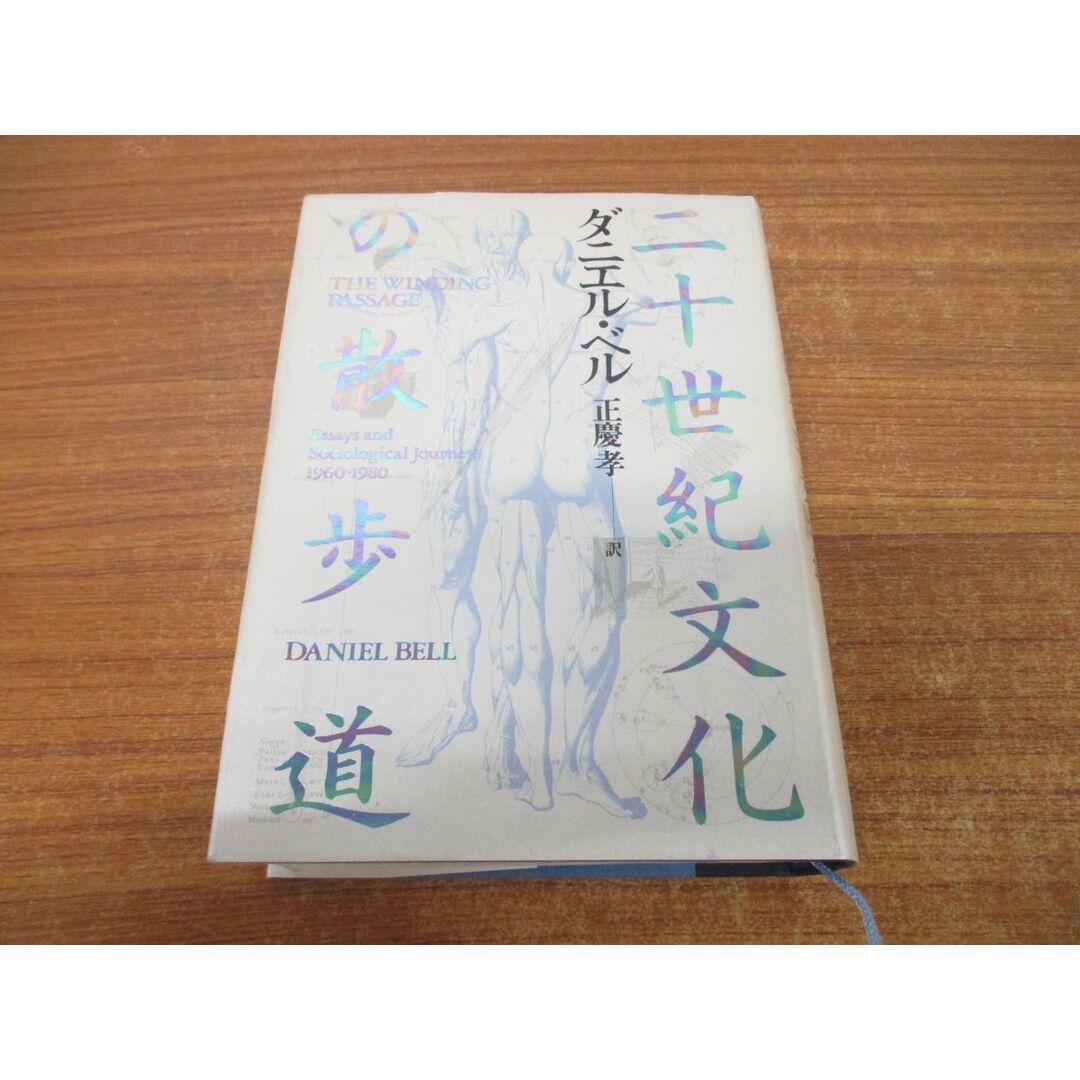 二十世紀文化
の散歩道
ダニエル・ベル
正慶孝
訳
THE WINDING
PASSAGE
Essays and
Sociological Journeys
1960-1980
DANIEL BELL